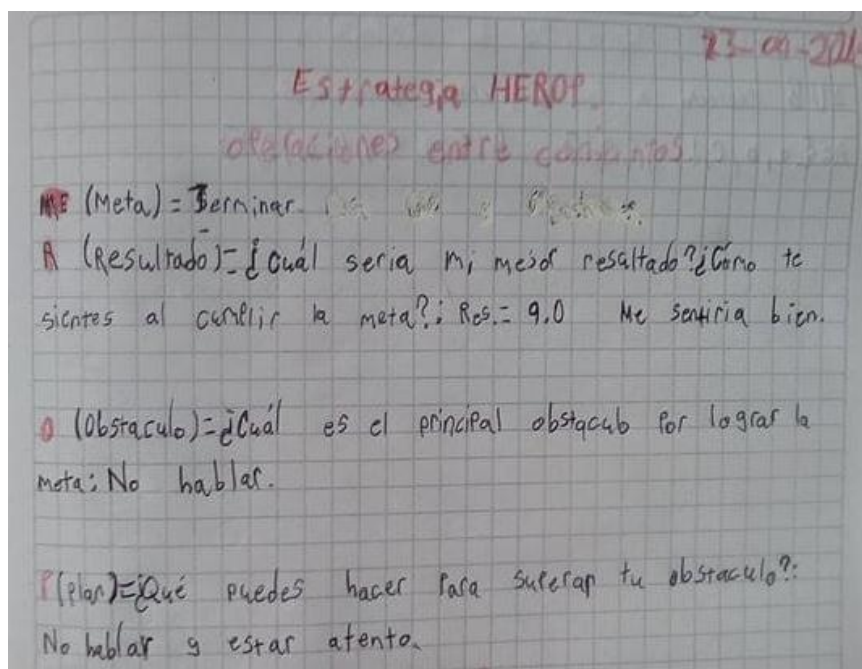 Estrategia HEROP.
operaciones entre conjuntos
ME (Meta) = Terminar
R (Resultado) = ¿Cuál seria mi mejor resaltado? ¿Cómo te
sientes al cumplir la meta?: Res. = 9.0 Me sentiria bien.
O (Obstaculo) = ¿Cuál es el principal obstaculo por lograr la
meta: No hablar.
P (Plan) = ¿Qué puedes hacer para superar tu obstaculo?:
No hablar y estar atento.